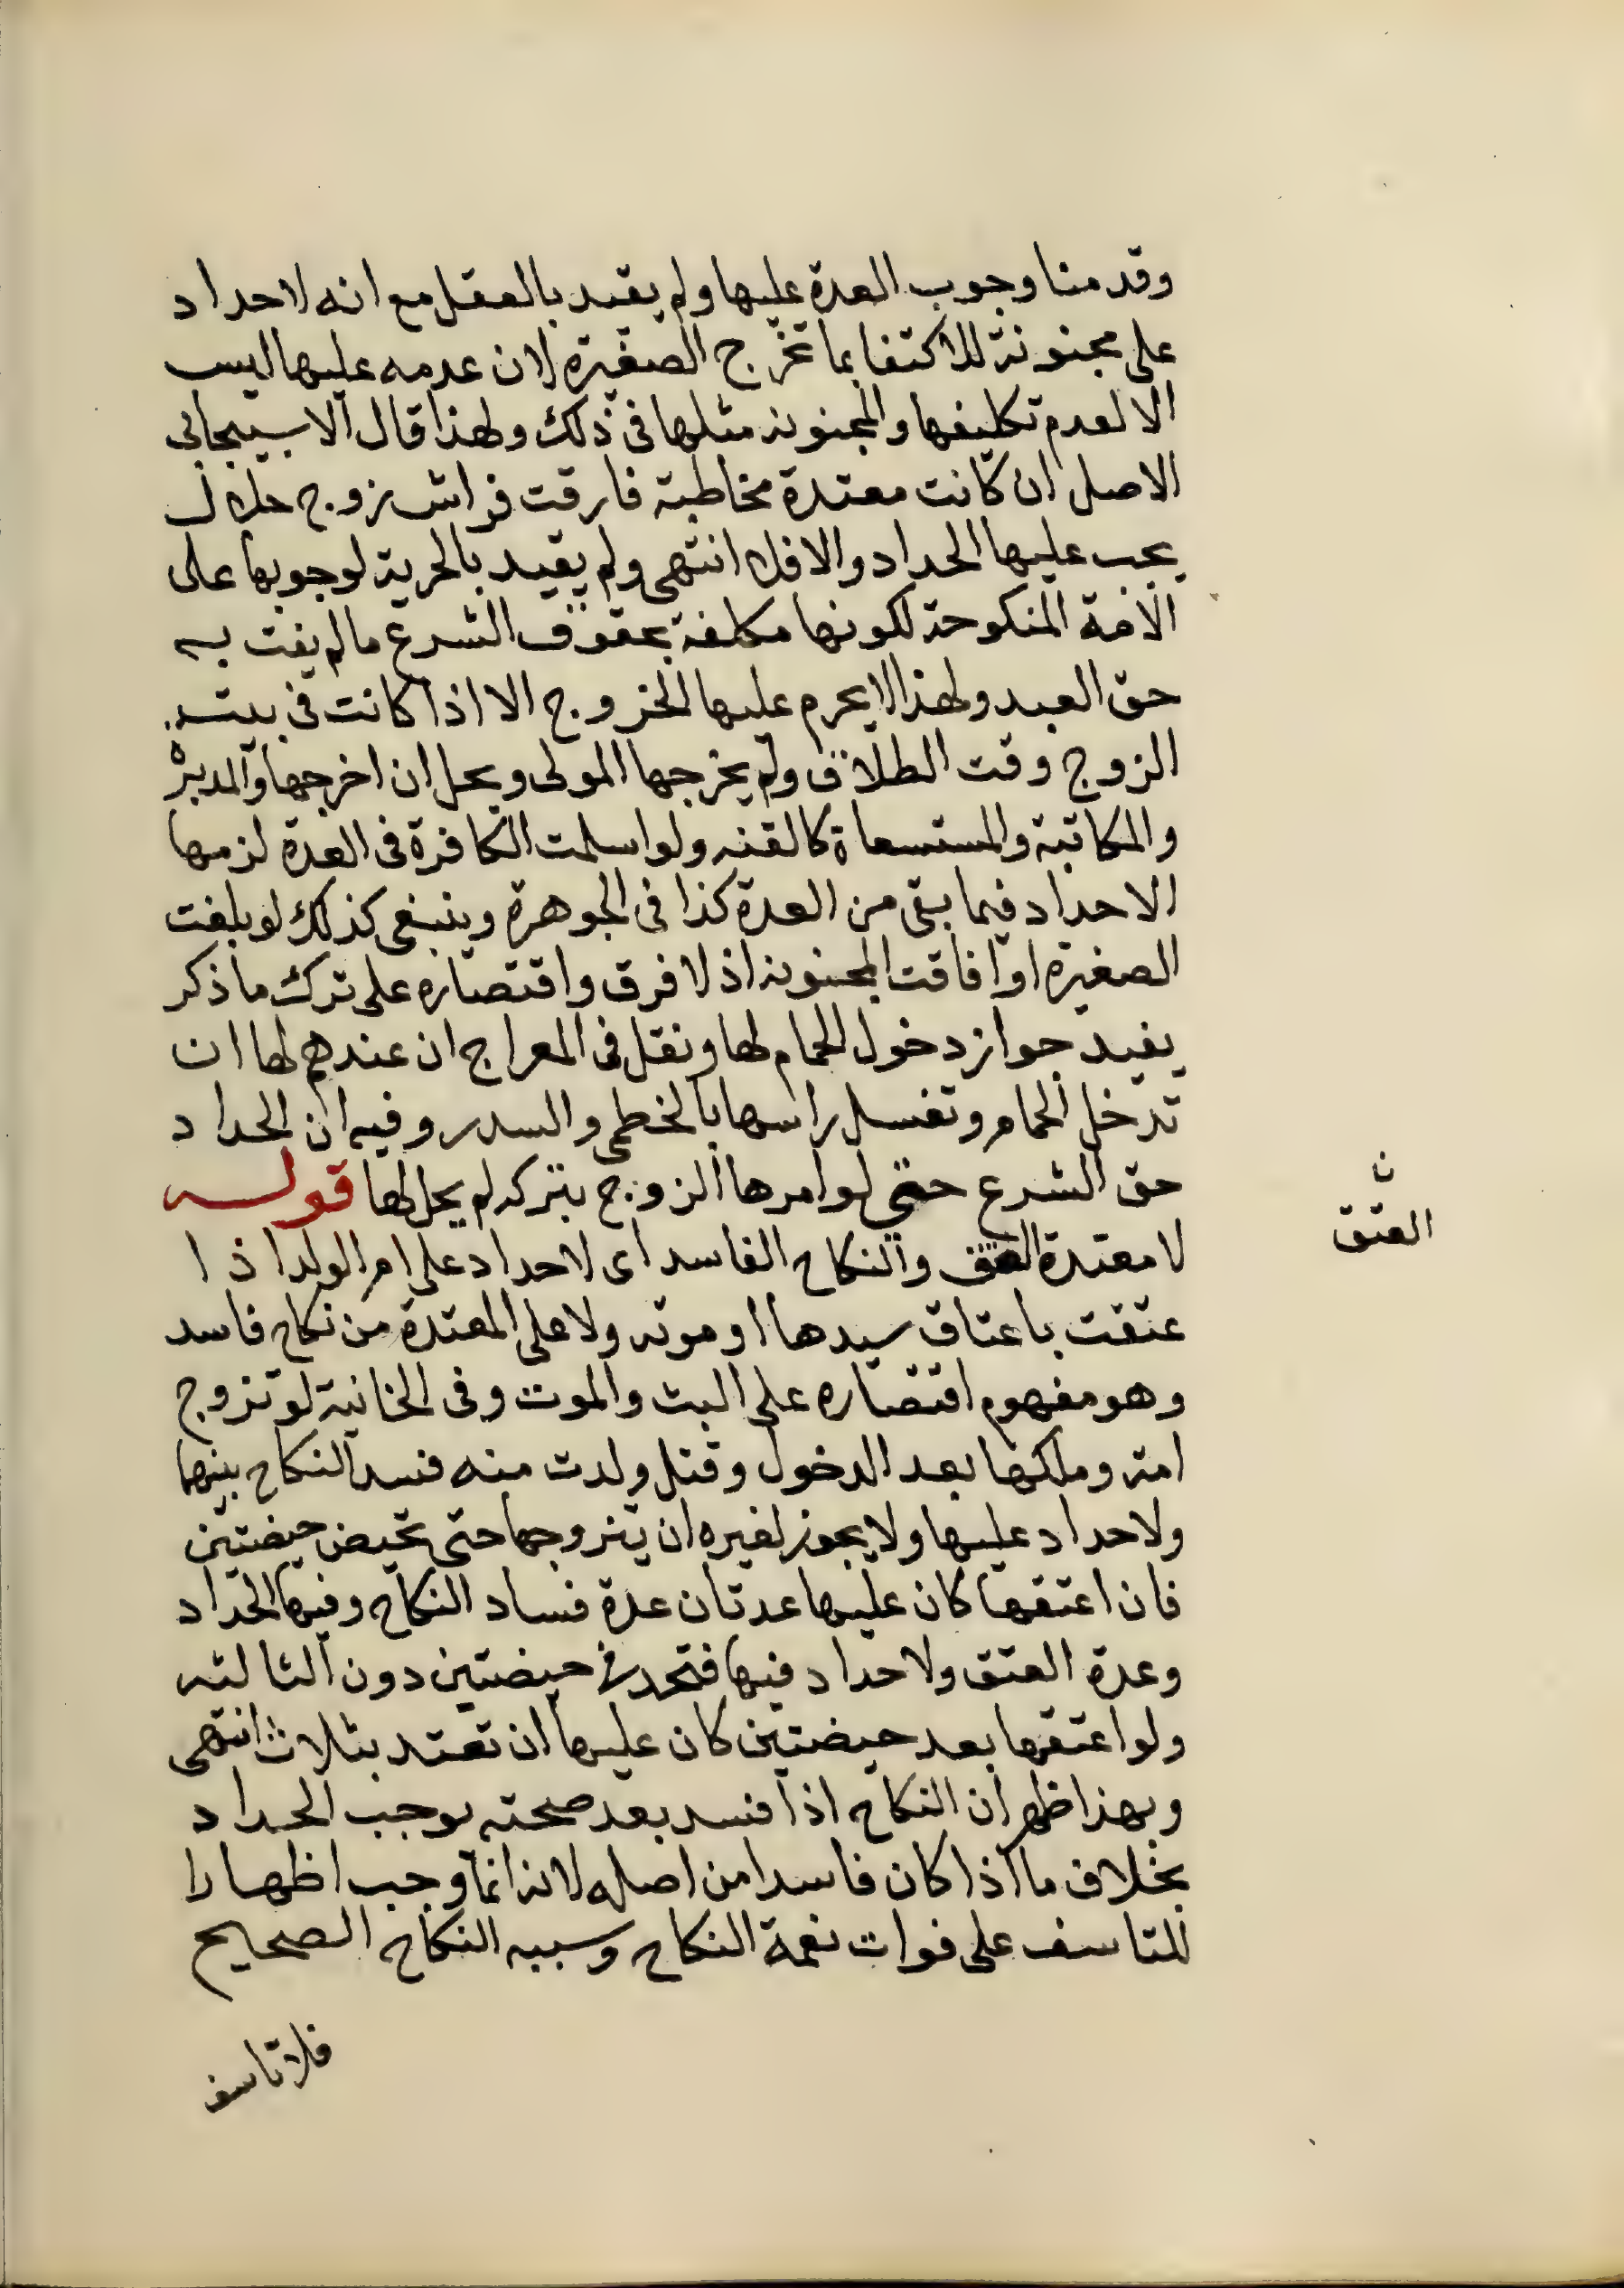 وقدمنا وجوب العدة عليها ولم يقيد بالعقل مع انه لا حداد
على مجنونة للاكتفا بما تخرج الصغيرة لان عدمه عليها ليس
الا لعدم تكليفها والمجنونة مثلها فى ذلك ولهذا قال الاسبيجابى
الاصل ان كانت معتدة مخاطبة فارقت فراش زوج حلال
يجب عليها الحداد والا فلا انتهى ولم يقيد بالحرية لوجوبها على
الامة المنكوحة لكونها مكلفة بحقوق الشرع ما لم يفت به
حق العبد ولهذا لا يحرم عليها الخروج الا اذا كانت فى بيت
الزوج وقت الطلاق ولم يخرجها المولى ويحل ان اخرجها والمدبرة
والمكاتبة والمستسعاة كالقنه ولو اسلمت الكافرة فى العدة لزمها
الاحداد فيما بقى من العدة كذا فى الجوهرة وينبغى كذلك لو بلغت
الصغيرة او افاقت المجنونة اذ لا فرق واقتصاره على ترك ما ذكر
يفيد جواز دخول الحمام لها ونقل فى المعراج ان عندهم لها ان
تدخل الحمام وتغسل راسها بالخطمى والسدر وفيه ان الحداد
حق الشرع حتى لو امرها الزوج بتركه لم يحل لها قوله
لا معتدة العتق والنكاح الفاسد اى لا حداد على ام الولد اذا
عتقت باعتاق سيدها او موته ولا على المعتدة من نكاح فاسد
وهو مفهوم اقتصاره على البت والموت وفى الخانية لو تزوج
امته وملكها بعد الدخول وقتل ولدت منه فسد النكاح بينهما
ولا حداد عليها ولا يجوز لغيره ان يتزوجها حتى تحيض حيضتين
فان اعتقها كان عليها عدتان عدة فساد النكاح وفيها الحداد
وعدة العتق ولا حداد فيها فتحد فى حيضتين دون الثالثه
ولو اعتقها بعد حيضتين كان عليها ان تعتد بثلاث انتهى
وبهذا ظهر ان النكاح اذا فسد بعد صحته يوجب الحداد
بخلاف ما اذا كان فاسدا من اصله لانه انما وجب اظهارا
للتاسف على فوات نعمة النكاح وسببه النكاح الصحيح
فلا تاسف
ن
العتق